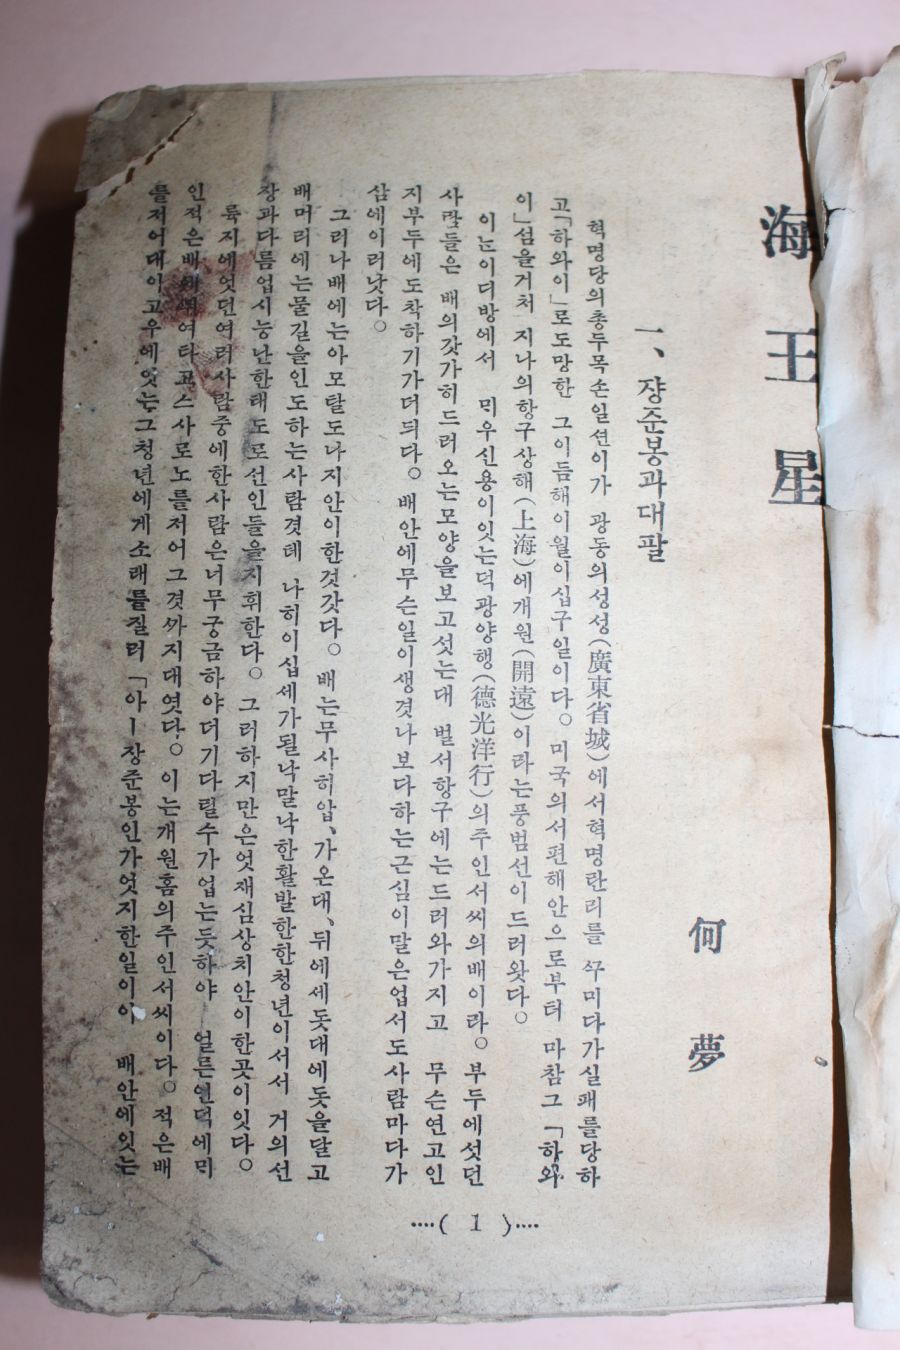 海王星
何夢
一、쟝준봉과대팔
혁명당의총두목손일션이가 광동의성성(廣東省城)에서혁명란리를 ᄭᅮ미다가실패를당하
고「하와이」로도망한 그이듬해이월이십구일이다。미국의서편해안으로부터 마참그「하와
이」섬을거처 지나의항구상해(上海)에개원(開遠)이라는풍범선이드러왓다。
이는이디방에서 ᄆᆡ우신용이잇는덕광양행(德光洋行)의주인서씨의배이라。부두에섯던
사람들은 배의갓가히드러오는모양을보고섯는대 벌서항구에는드러와가지고 무슨연고인
지부두에도착하기가더듸다。배안에무슨일이생겻나보다하는근심이말은업서도사람마다가
삼에이러낫다。
그러나배에는아모탈도나지안이한것갓다。배는무사히압、가온대、뒤에세돗대에돗을달고
배머리에는물길을인도하는사람겻테 나히이십세가될낙말낙한활발한한청년이서서 거의선
장과다름업시능난한태도로선인들을지휘한다。그러하지만은엇재심상치안이한곳이잇다。
륙지에잇던여러사람중에한사람은너무궁금하야더기다릴수가업는듯하야 얼른언덕에ᄆᆡ
인적은배에여타고스사로노를저어그겻ᄭᅡ지대엿다。이는개원홈의주인서씨이다。적은배
를저어대이고우에잇는그청년에게소래를질러「아ㅣ장준봉인가엇지한일이이 배안에잇는
....( 1 )....